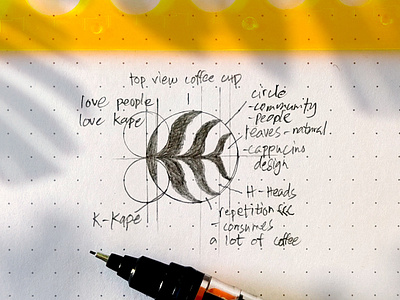 top view coffee cup
love people
love kape
circle
-community
-people
leaves - natural
-cappucino
design
H-Heads
K-Kape
repetition ccc
- consumes
a lot of coffee